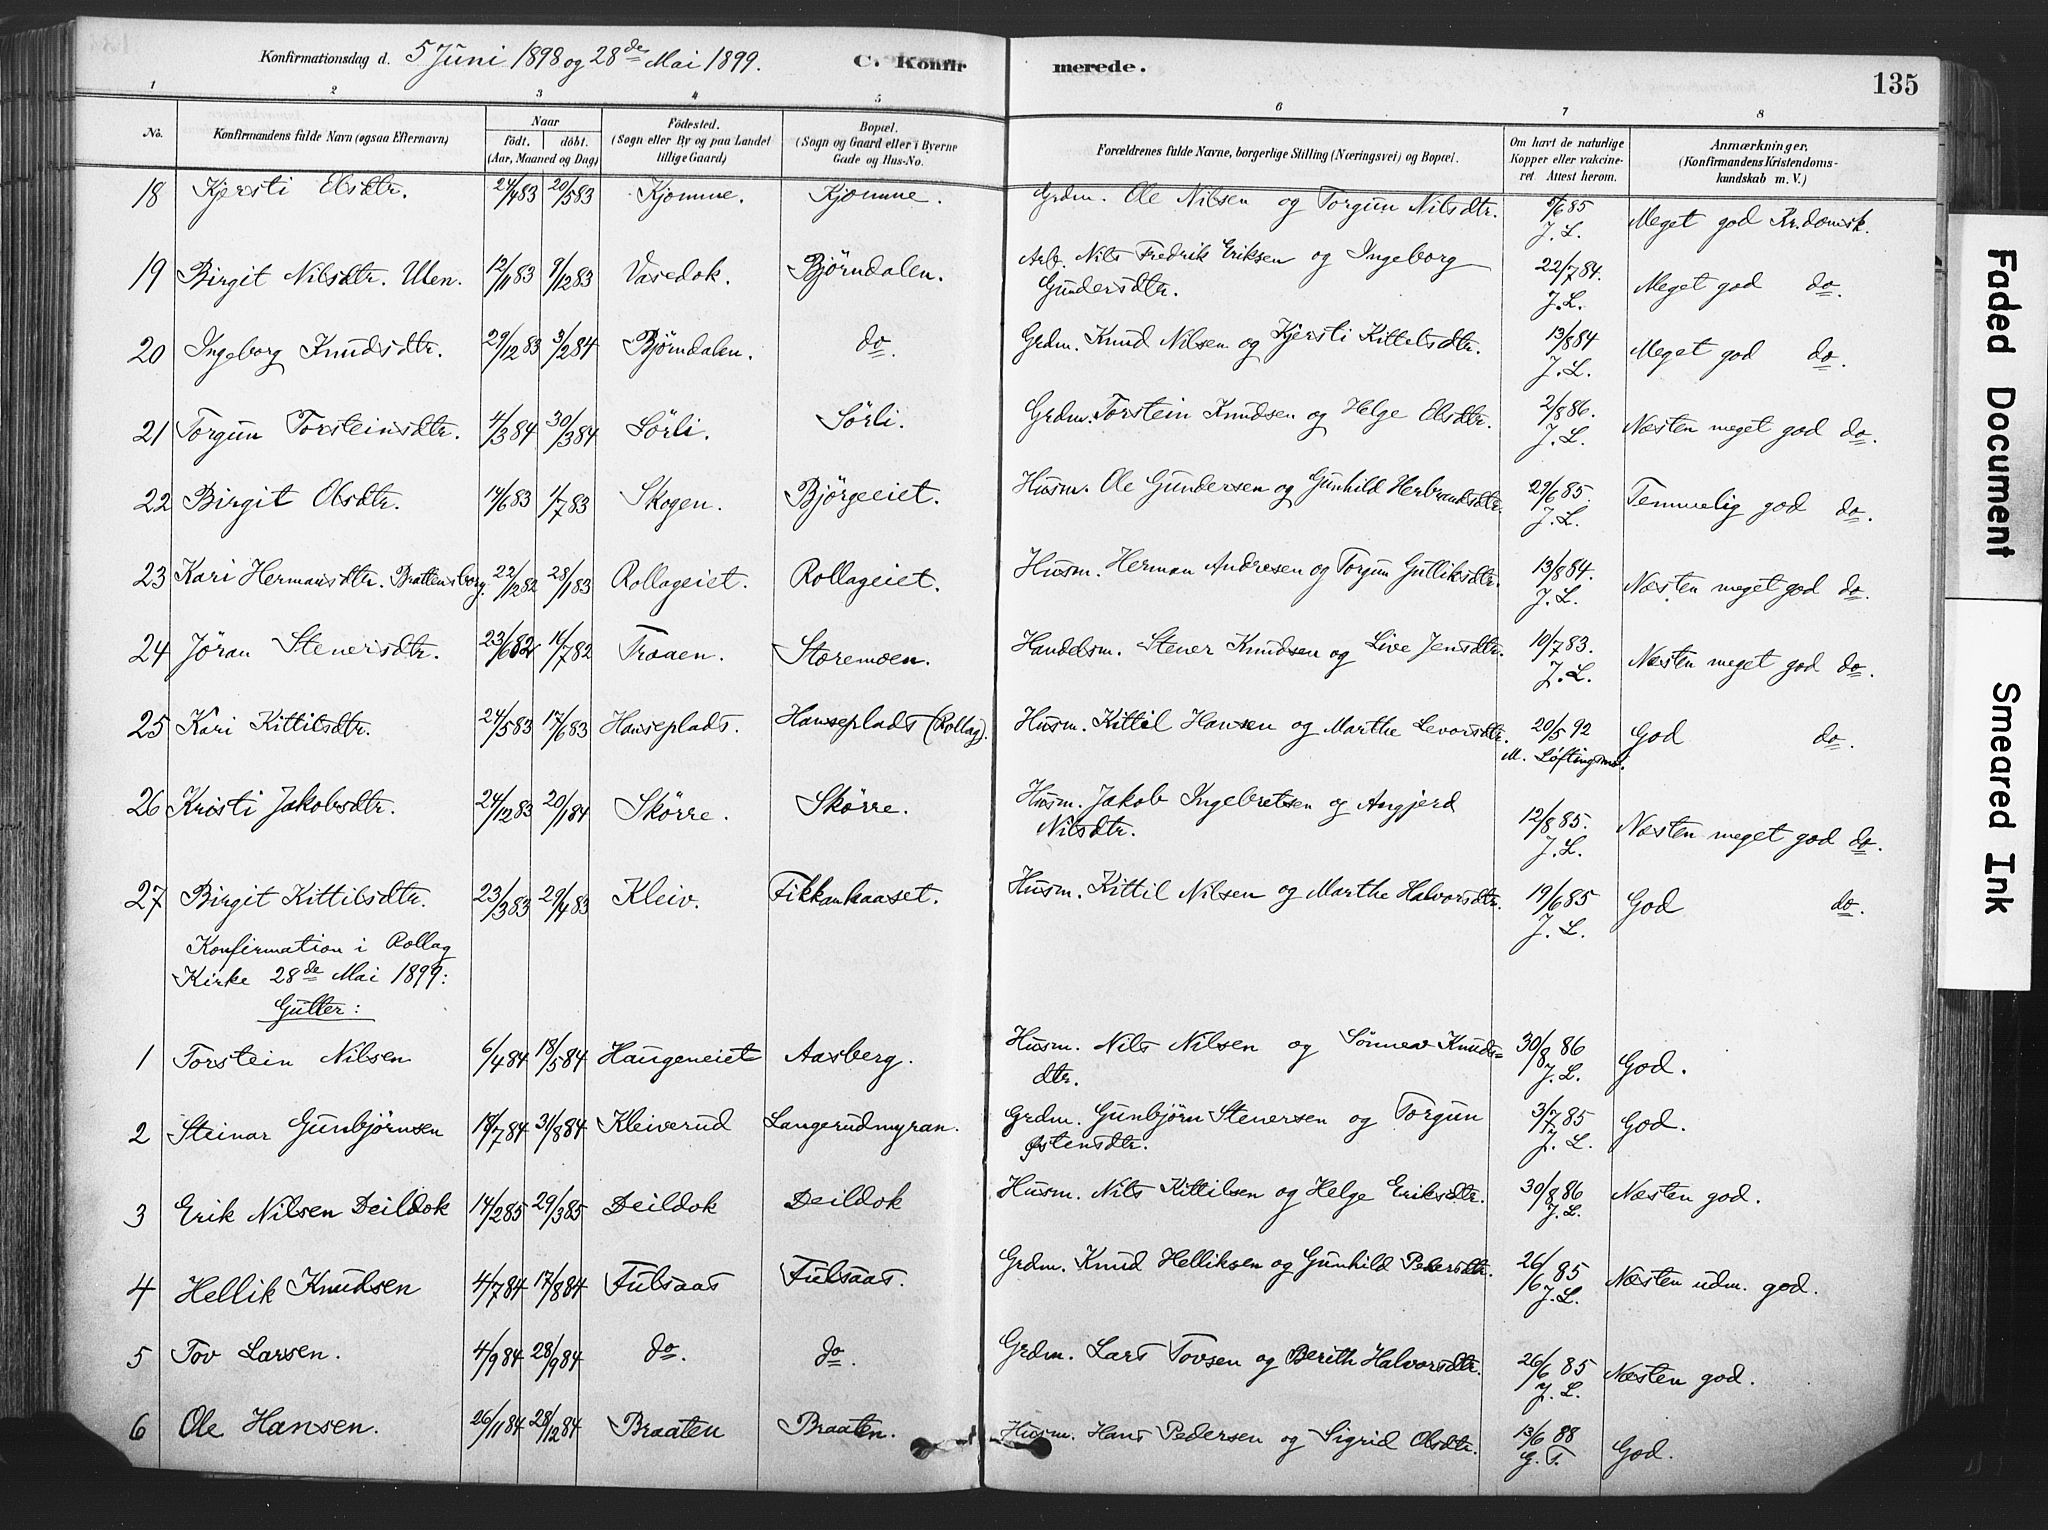 Konfirmationsdag d. 5 Juni 1898 og 28de Mai 1899. C. Konfirmerede. 135
1 2 3 4 5 6 7 8
No. Konfirmandens fulde Navn (ogsaa Efternavn) Naar födt. döbt. (Aar, Maaned og Dag) Födested. (Sogn eller By og paa Landet tillige Gaard) Bopæl. (Sogn og Gaard eller i Byerne Gade og Hus-No. Forældrenes fulde Navne, borgerlige Stilling (Næringsvei) og Bopæl. Om havt de naturlige Kopper eller vakcineret. Attest herom. Anmærkninger, (Konfirmandens Kristendomskundskab m. V.)
18 Kjersti Olsdtr. 24/4 83 20/5 83 Kjomme. Kjomme. Grdm. Ole Nilsen og Torgun Nilsdtr. 5/6 85 J. L. Meget god Kr.domsk.
19 Birgit Nilsdtr. Ulen. 12/11 83 9/12 83 Vasedok. Björndalen. Arb. Nils Fredrik Eriksen og Ingeborg Gundersdtr. 22/7 84. J. L. Meget god do.
20 Ingeborg Knudsdtr. 29/12 83 3/2 84 Bjørndalen. do. Grdm. Knud Nilsen og Kjersti Kittelsdtr. 13/8 84 J. L. Meget god do.
21 Torgun Torsteinsdtr. 4/3 84 30/3 84 Sörli. Sörli. Grdm. Torstein Knudsen og Helge Olsdtr. 2/8 86. J. L. Næsten meget god do.
22 Birgit Olsdtr. 14/6 83 1/7 83 Skogen. Björgeeiet. Husm. Ole Gundersen og Gunhild Herbrandsdtr. 29/6 85. J. L. Temmelig god do.
23 Kari Hermansdtr. Brattensborg. 22/12 82 28/1 83 Rollageiet. Rollageiet. Husm. Herman Andresen og Torgun Gulliksdtr. 13/8 84. J. L. Næsten meget god do.
24 Jöran Stenersdtr. 23/6 82 16/7 82 Traaen. Storemoen. Handelsm. Stener Knudsen og Live Jensdtr. 10/7 83. J. L. Næsten meget god do.
25 Kari Kittilsdtr. 24/5 83 17/6 83 Hanseplads. Hanseplads (Rollag). Husm. Kittil Hansen og Marthe Levorsdtr. 20/5 92 M. Løftingsmo. God do.
26 Kristi Jakobsdtr. 24/12 83 20/1 84 Skörre. Skörre. Husm. Jakob Ingebretsen og Angjerd Nilsdtr. 12/8 85. J. L. Næsten meget god do.
27 Birgit Kittilsdtr. 23/3 83 29/4 83 Kleiv. Fikkanhaaset. Husm. Kittil Nilsen og Marthe Halvorsdtr. 19/6 85 J. L. God do.
Konfirmation i Rollag
Kirke 28de Mai 1899:
Gutter:
1 Torstein Nilsen 6/4 84 18/5 84 Haugeneiet Aasberg. Husm. Nils Nilsen og Sönnev Knudsdtr. 30/8 86 J. L. God.
2 Steinar Gunbjörnsen 18/7 84 31/8 84 Kleiverud Langerudmyran. Grdm. Gunbjörn Stenersen og Torgun Østensdtr. 3/7 85 J. L. God.
3 Erik Nilsen Deildok 14/2 85 29/3 85 Deildok Deildok Husm. Nils Kittilsen og Helge Eriksdtr. 30/8 86 J. L. Næsten god.
4 Hellik Knudsen 4/7 84 17/8 84 Fulsaas Fulsaas. Grdm. Knud Helliksen og Gunhild Pedersdtr. 26/6 85 J. L. Næsten udm. god.
5 Tov Larsen. 4/9 84 28/9 84 do. do. Grdm. Lars Tovsen og Berith Halvorsdtr. 26/6 85 J. L. Næsten god.
6 Ole Hansen. 26/11 84 28/12 84 Braaten Braaten. Husm. Hans Pedersen og Sigrid Olsdtr. 13/6 88 G. T. God.
Faded Document
Smeared Ink